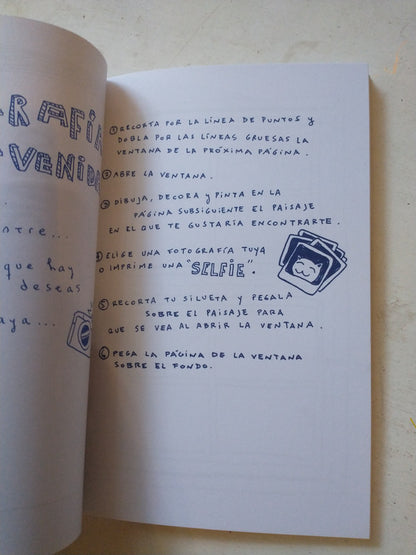 RAFÍA
VENIDA
ntre...
que hay
deseas
aya...
① RECORTA POR LA LÍNEA DE PUNTOS Y
DOBLA POR LAS LÍNEAS GRUESAS LA
VENTANA DE LA PRÓXIMA PÁGINA.
② ABRE LA VENTANA.
③ DIBUJA, DECORA Y PINTA EN LA
PÁGINA SUBSIGUIENTE EL PAISAJE
EN EL QUE TE GUSTARÍA ENCONTRARTE.
④ ELIGE UNA FOTOGRAFÍA TUYA
O IMPRIME UNA "SELFIE".
⑤ RECORTA TU SILUETA Y PEGALA
SOBRE EL PAISAJE PARA
QUE SE VEA AL ABRIR LA VENTANA.
⑥ PEGA LA PÁGINA DE LA VENTANA
SOBRE EL FONDO.